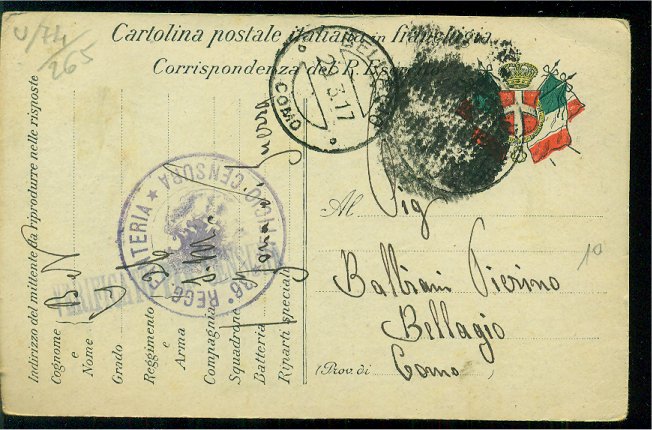 U/74
265
Cartolina postale italiana in franchigia
Corrispondenza del R. Esercito
BELLAGIO
3.17
COMO
Indirizzo del mittente da riprodurre nelle risposte
Cognome
e
Nome
Grado
Reggimento
e
Arma
Compagnia
Squadrone
Batteria
Riparti speciali
Zona di Guerra
86° REGG. FANTERIA
UFFICIO CENSURA
Al Sig
Balbiani Pierino
Bellagio
(Prov. di Como
10